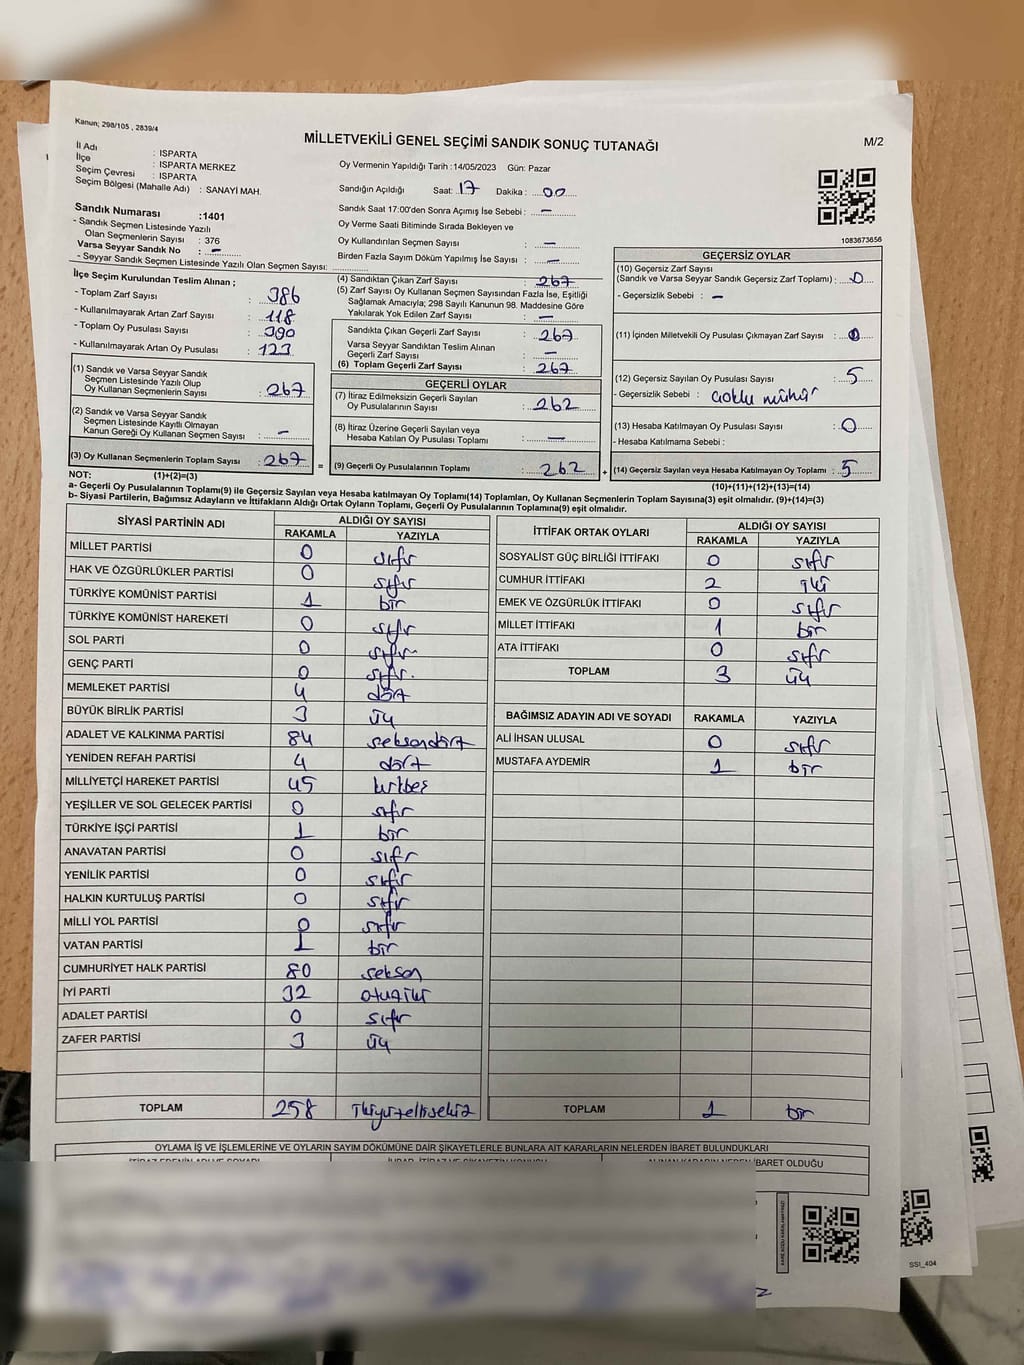 Kanun; 298/105 , 2839/4
MİLLETVEKİLİ GENEL SEÇİMİ SANDIK SONUÇ TUTANAĞI
M/2
İl Adı : ISPARTA
İlçe : ISPARTA MERKEZ
Seçim Çevresi : ISPARTA
Seçim Bölgesi (Mahalle Adı) : SANAYİ MAH.
Oy Vermenin Yapıldığı Tarih :14/05/2023 Gün: Pazar
Sandığın Açıldığı Saat: 17 Dakika : 00
Sandık Saat 17:00'den Sonra Açımış İse Sebebi : -
Oy Verme Saati Bitiminde Sırada Bekleyen ve
Oy Kullandırılan Seçmen Sayısı : -
Birden Fazla Sayım Döküm Yapılmış İse Sayısı : -
1083673656
Sandık Numarası :1401
- Sandık Seçmen Listesinde Yazılı
Olan Seçmenlerin Sayısı : 376
Varsa Seyyar Sandık No : -
- Seyyar Sandık Seçmen Listesinde Yazılı Olan Seçmen Sayısı:
İlçe Seçim Kurulundan Teslim Alınan ;
- Toplam Zarf Sayısı : 386
- Kullanılmayarak Artan Zarf Sayısı : 118
- Toplam Oy Pusulası Sayısı : 390
- Kullanılmayarak Artan Oy Pusulası : 123
(1) Sandık ve Varsa Seyyar Sandık
Seçmen Listesinde Yazılı Olup
Oy Kullanan Seçmenlerin Sayısı : 267
(2) Sandık ve Varsa Seyyar Sandık
Seçmen Listesinde Kayıtlı Olmayan
Kanun Gereği Oy Kullanan Seçmen Sayısı : -
(3) Oy Kullanan Seçmenlerin Toplam Sayısı : 267
(4) Sandıktan Çıkan Zarf Sayısı : 267
(5) Zarf Sayısı Oy Kullanan Seçmen Sayısından Fazla İse, Eşitliği
Sağlamak Amacıyla; 298 Sayılı Kanunun 98. Maddesine Göre
Yakılarak Yok Edilen Zarf Sayısı : -
Sandıkta Çıkan Geçerli Zarf Sayısı : 267
Varsa Seyyar Sandıktan Teslim Alınan
Geçerli Zarf Sayısı : -
(6) Toplam Geçerli Zarf Sayısı : 267
GEÇERLİ OYLAR
(7) İtiraz Edilmeksizin Geçerli Sayılan
Oy Pusulalarının Sayısı : 262
(8) İtiraz Üzerine Geçerli Sayılan veya
Hesaba Katılan Oy Pusulası Toplamı : -
= (9) Geçerli Oy Pusulalarının Toplamı : 262 +
GEÇERSİZ OYLAR
(10) Geçersiz Zarf Sayısı
(Sandık ve Varsa Seyyar Sandık Geçersiz Zarf Toplamı) : 0
- Geçersizlik Sebebi : -
(11) İçinden Milletvekili Oy Pusulası Çıkmayan Zarf Sayısı : 0
(12) Geçersiz Sayılan Oy Pusulası Sayısı : 5
- Geçersizlik Sebebi : çoklu mühür
(13) Hesaba Katılmayan Oy Pusulası Sayısı : 0
- Hesaba Katılmama Sebebi :
(14) Geçersiz Sayılan veya Hesaba Katılmayan Oy Toplamı : 5
NOT: (1)+(2)=(3)
(10)+(11)+(12)+(13)=(14)
a- Geçerli Oy Pusulalarının Toplamı(9) ile Geçersiz Sayılan veya Hesaba katılmayan Oy Toplamı(14) Toplamları, Oy Kullanan Seçmenlerin Toplam Sayısına(3) eşit olmalıdır. (9)+(14)=(3)
b- Siyasi Partilerin, Bağımsız Adayların ve İttifakların Aldığı Ortak Oyların Toplamı, Geçerli Oy Pusulalarının Toplamına(9) eşit olmalıdır.
SİYASİ PARTİNİN ADI ALDIĞI OY SAYISI
RAKAMLA YAZIYLA
MİLLET PARTİSİ 0 sıfır
HAK VE ÖZGÜRLÜKLER PARTİSİ 0 sıfır
TÜRKİYE KOMÜNİST PARTİSİ 1 bir
TÜRKİYE KOMÜNİST HAREKETİ 0 sıfır
SOL PARTİ 0 sıfır
GENÇ PARTİ 0 sıfır.
MEMLEKET PARTİSİ 4 dört
BÜYÜK BİRLİK PARTİSİ 3 üç
ADALET VE KALKINMA PARTİSİ 84 seksendört
YENİDEN REFAH PARTİSİ 4 dört
MİLLİYETÇİ HAREKET PARTİSİ 45 kırkbeş
YEŞİLLER VE SOL GELECEK PARTİSİ 0 sıfır
TÜRKİYE İŞÇİ PARTİSİ 1 bir
ANAVATAN PARTİSİ 0 sıfır
YENİLİK PARTİSİ 0 sıfır
HALKIN KURTULUŞ PARTİSİ 0 sıfır
MİLLİ YOL PARTİSİ 0 sıfır
VATAN PARTİSİ 1 bir
CUMHURİYET HALK PARTİSİ 80 seksen
İYİ PARTİ 32 otuziki
ADALET PARTİSİ 0 sıfır
ZAFER PARTİSİ 3 üç
TOPLAM 258 ikiyüzellisekiz
İTTİFAK ORTAK OYLARI ALDIĞI OY SAYISI
RAKAMLA YAZIYLA
SOSYALİST GÜÇ BİRLİĞİ İTTİFAKI 0 sıfır
CUMHUR İTTİFAKI 2 iki
EMEK VE ÖZGÜRLÜK İTTİFAKI 0 sıfır
MİLLET İTTİFAKI 1 bir
ATA İTTİFAKI 0 sıfır
TOPLAM 3 üç
BAĞIMSIZ ADAYIN ADI VE SOYADI RAKAMLA YAZIYLA
ALİ İHSAN ULUSAL 0 sıfır
MUSTAFA AYDEMİR 1 bir
TOPLAM 1 bir
OYLAMA İŞ VE İŞLEMLERİNE VE OYLARIN SAYIM DÖKÜMÜNE DAİR ŞİKAYETLERLE BUNLARA AİT KARARLARIN NELERDEN İBARET BULUNDUKLARI
İBARET OLDUĞU
SSI_404